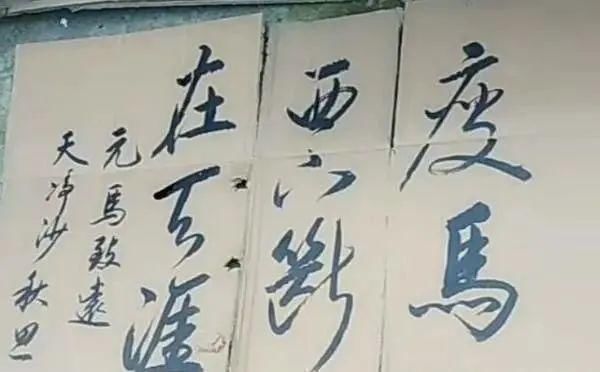 瘦馬
西下斷
在天涯
元馬致遠
天淨沙秋思